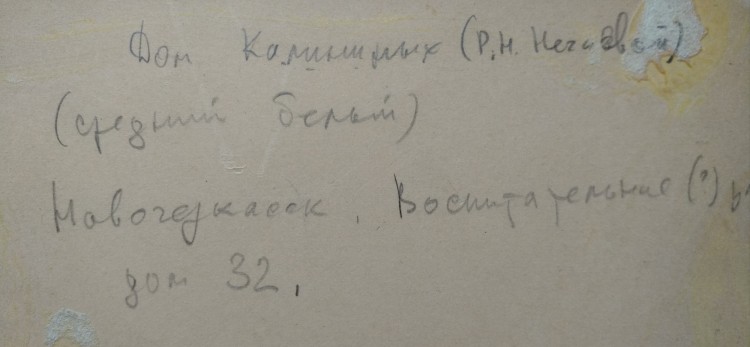 Дом Калининых (Р.Н. Нечаевой)
(средний белый)
Новочеркасск, Воспитательные (?)
дом 32,